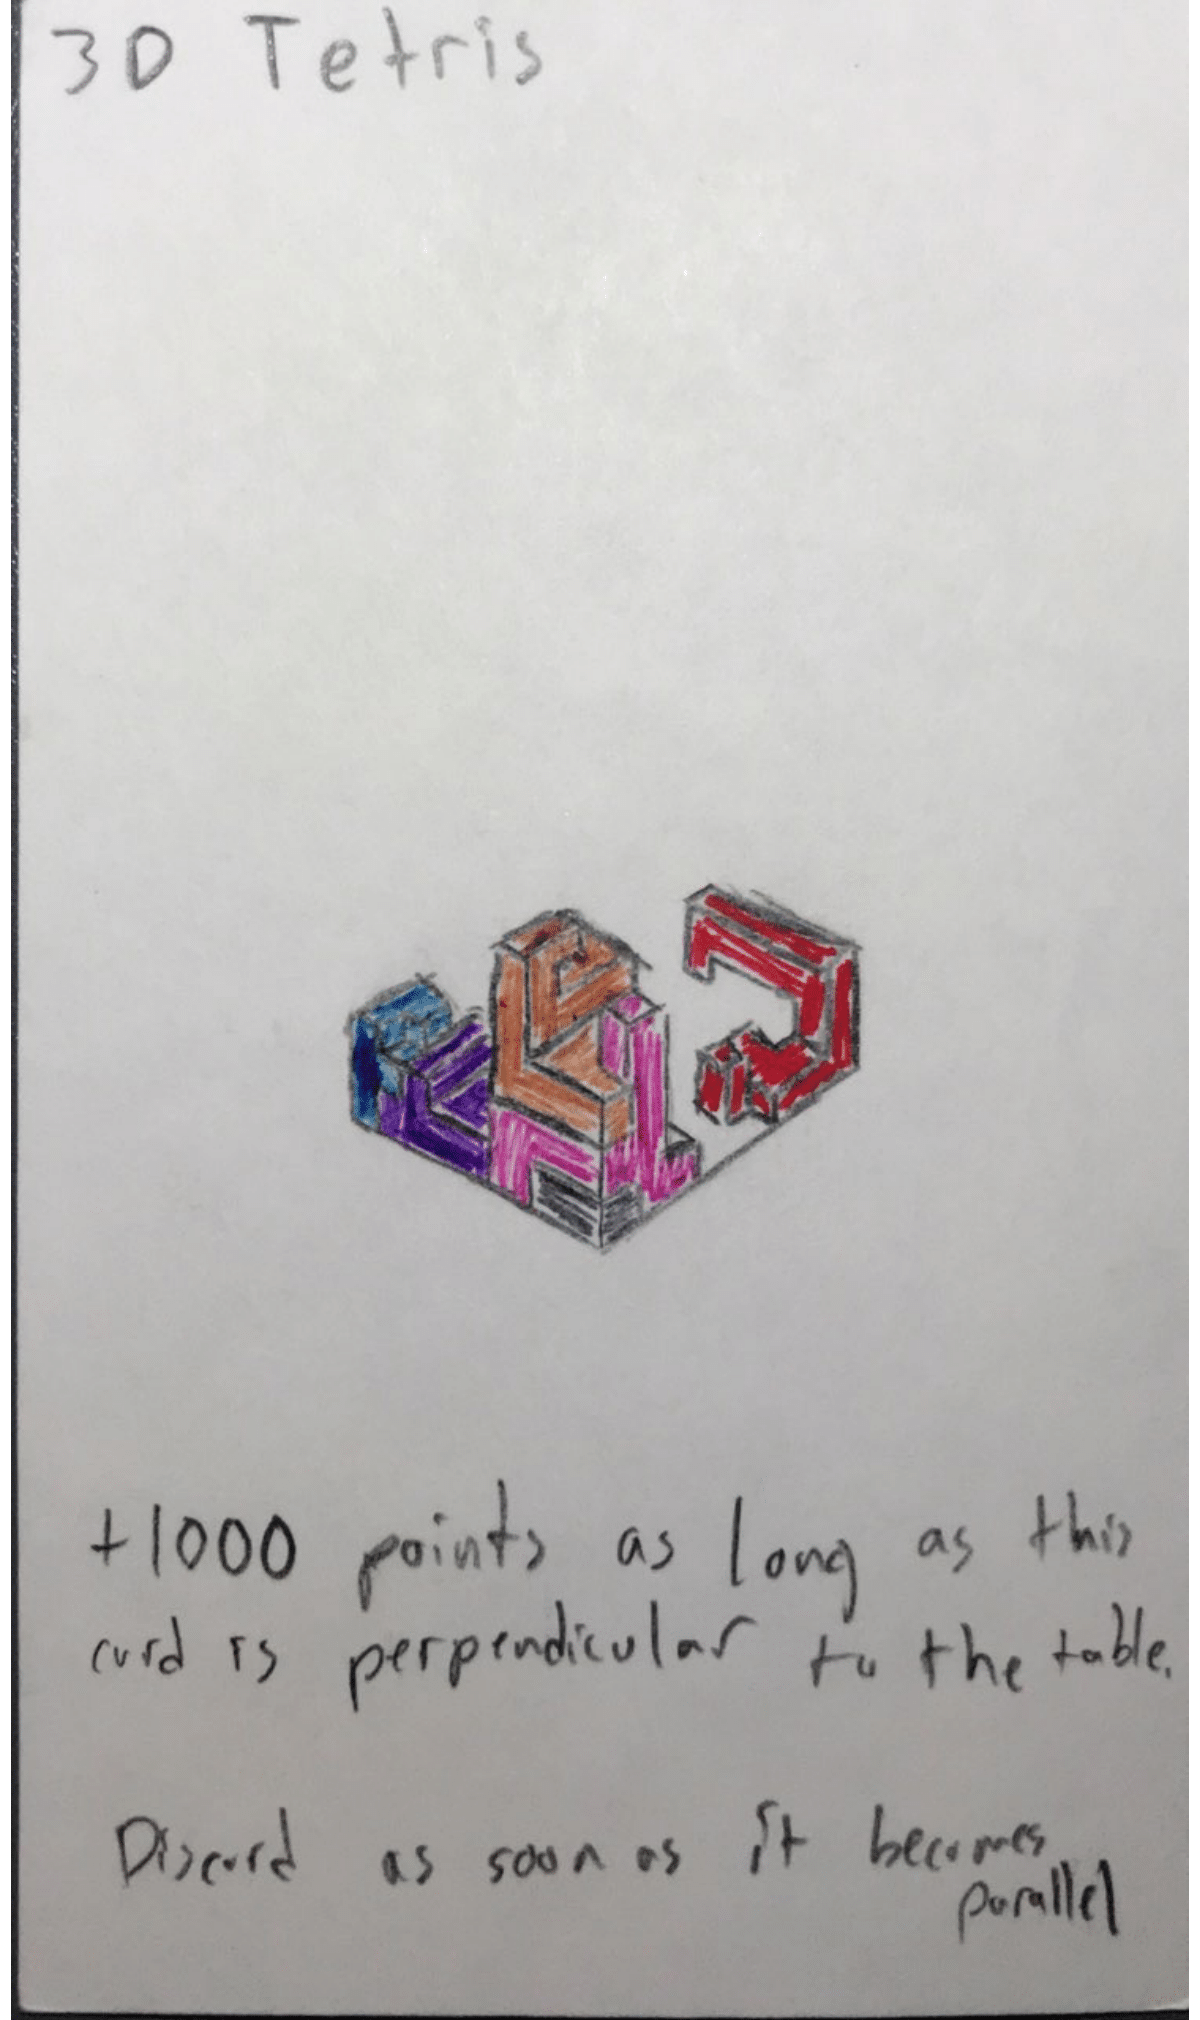 3D Tetris
+1000 points as long as this
card is perpendicular to the table.
Discard as soon as it becomes
parallel